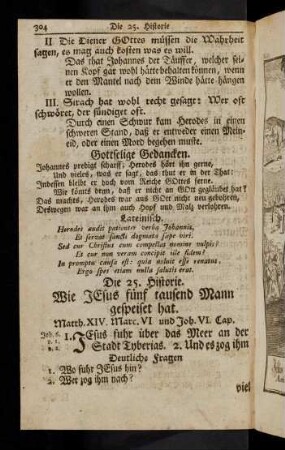 304 Die 25. Historie
II. Die Diener GOttes müssen die Wahrheit
sagen, es mag auch kosten was es will.
Das that Johannes der Täuffer, welcher sei-
nen Kopf gar wohl hätte behalten können, wenn
er den Mantel nach dem Winde hätte hängen
wollen.
III. Sirach hat wohl recht gesagt: Wer oft
schwöret, der sündiget oft.
Durch einen Schwur kam Herodes in einen
schweren Stand, daß er entweder einen Mein-
eid, oder einen Mord begehen muste.
Gottselige Gedancken.
Johannes predigt scharff; Herodes hört ihn gerne,
Und vieles, was er sagt, das thut er in der That:
Indessen bleibt er doch vom Reiche GOttes ferne.
Wie kömts denn, daß er nicht an GOtt gegläubet hat?
Das machts, Herodes war aus GOtt nicht neu gebohren,
Deßwegen war an ihm auch Hopf und Maltz verlohren.
Lateinisch.
Herodes audit patienter verba Johannis,
Et servat sancti dogmata sæpe viri.
Sed cur Christus eum compellat nomine vulpis?
Et cur non veram concipit ille fidem?
In promptu causa est: quia noluit esse renatus,
Ergo spes etiam nulla salutis erat.
Die 25. Historie.
Wie JEsus fünf tausend Mann
gespeiset hat.
Matth. XIV. Marc. VI und Joh. VI. Cap.
1. JEsus fuhr über das Meer an der
Stadt Tyberias. 2. Und es zog ihm
Deutliche Fragen
1. Wo fuhr JEsus hin?
2. Wer zog ihm nach?
viel